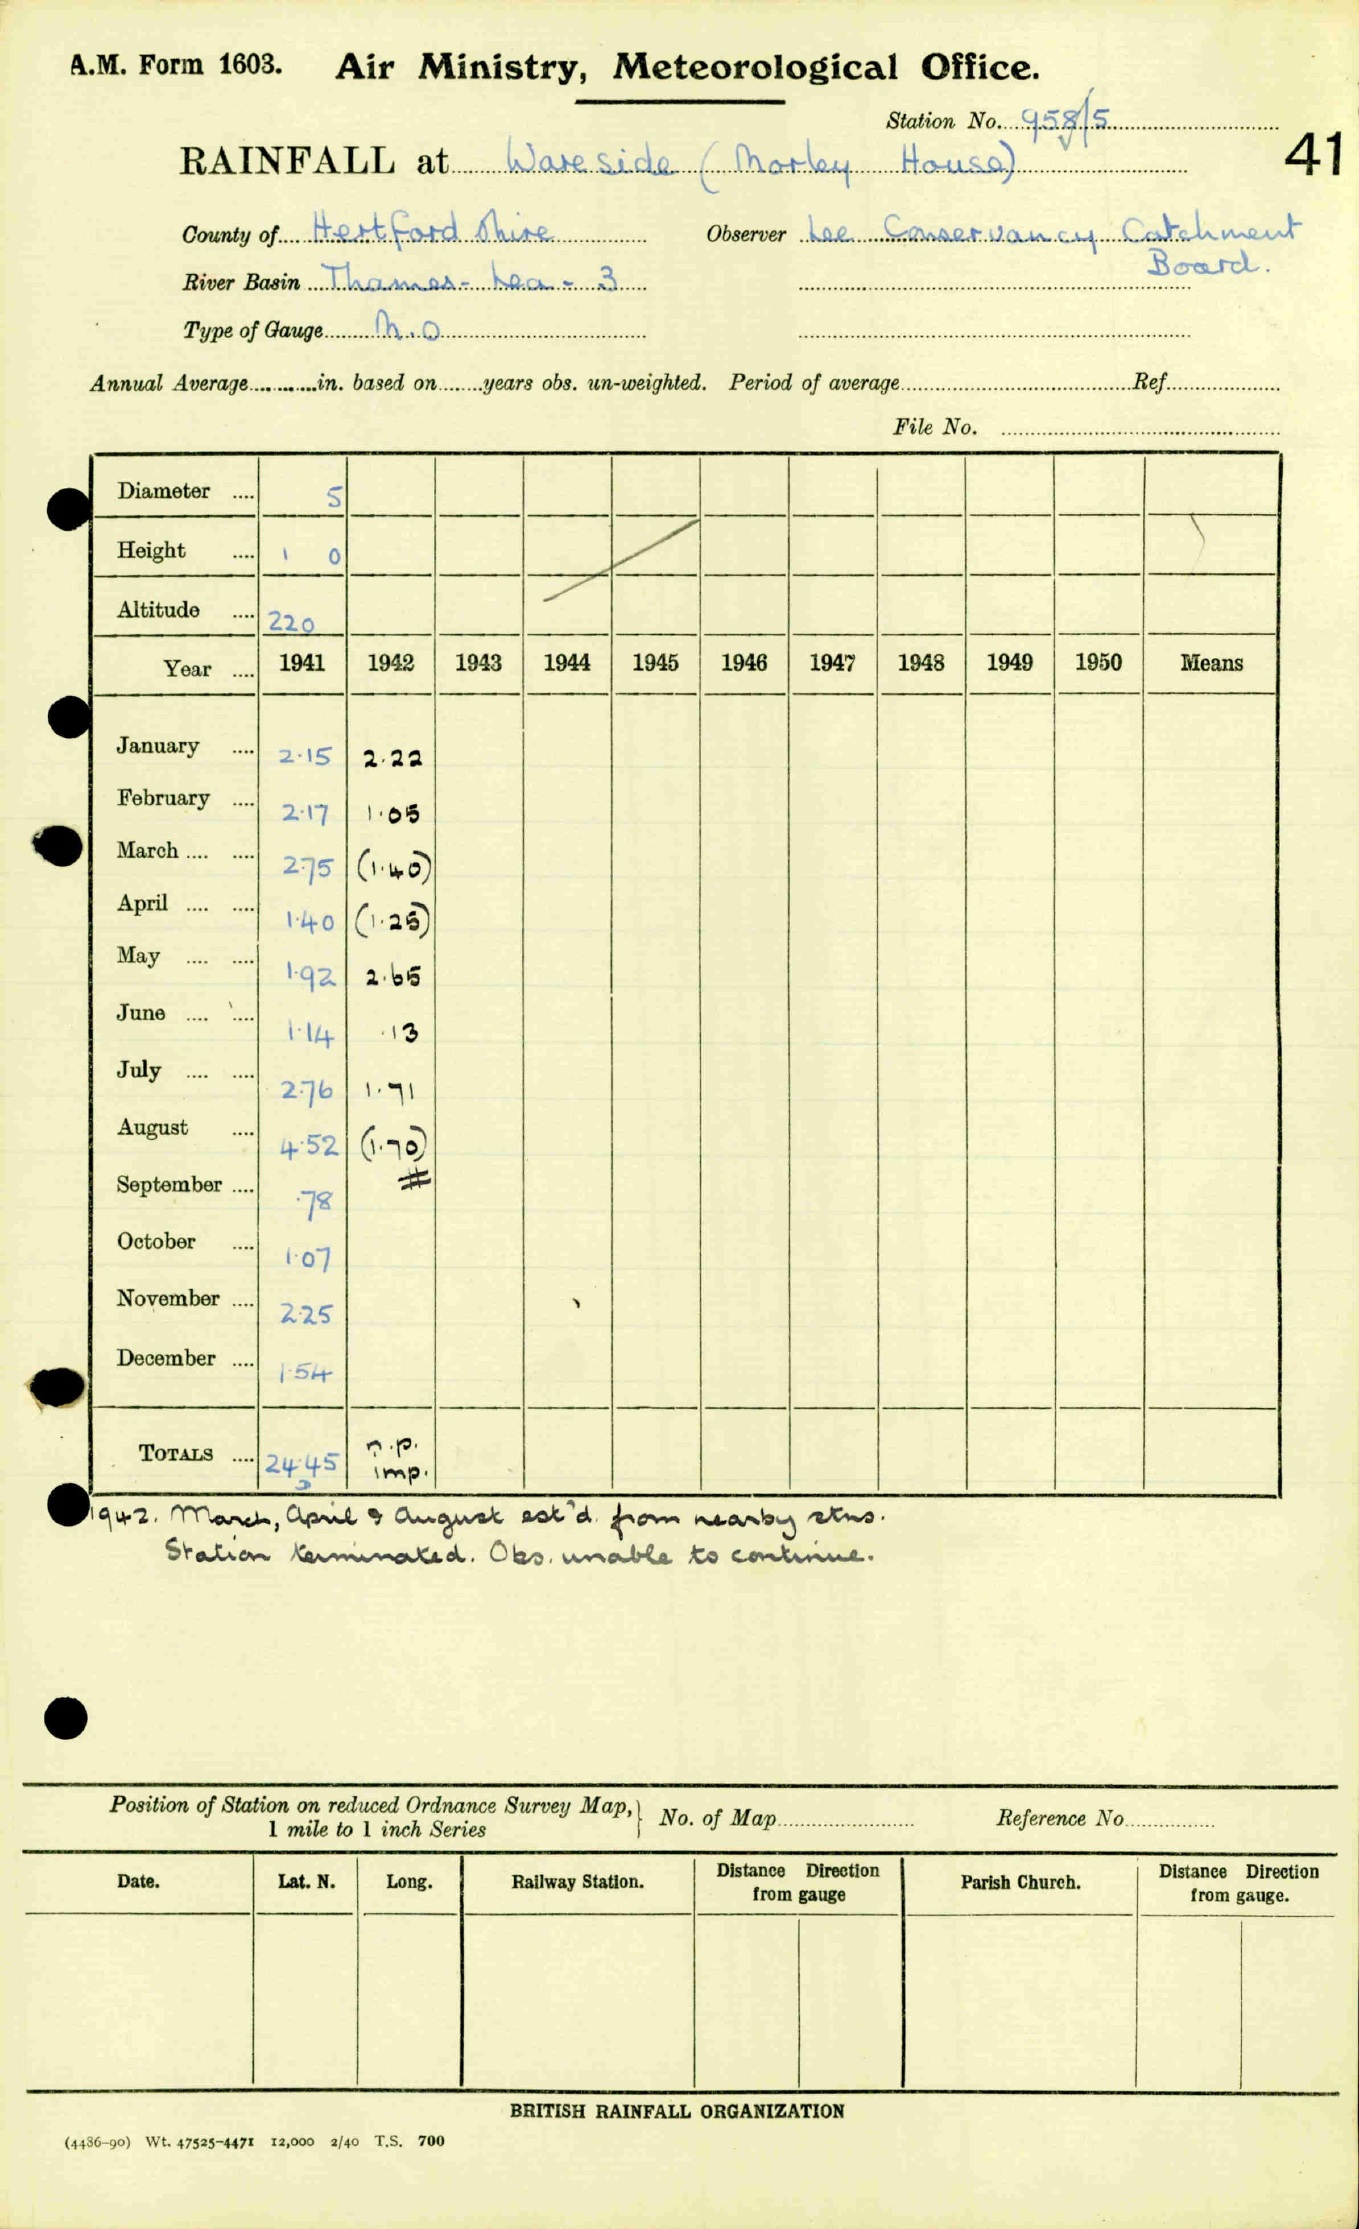 A.M. Form 1603. Air Ministry, Meteorological Office.
Station No. 958/5
41
RAINFALL at Wareside (Morley House)
County of Hertfordshire Observer Lee Conservancy Catchment
Board.
River Basin Thames - Lea - 3
Type of Gauge M.O
Annual Average in. based on years obs. un-weighted. Period of average Ref.
File No.
Diameter .... 5
Height .... 1 0
Altitude .... 220
Year .... 1941 1942 1943 1944 1945 1946 1947 1948 1949 1950 Means
January .... 2.15 2.22
February .... 2.17 1.05
March .... .... 2.75 (1.40)
April .... .... 1.40 (1.25)
May .... .... 1.92 2.65
June .... .... 1.14 .13
July .... .... 2.76 1.71
August .... 4.52 (1.70)
#
September .... .78
October .... 1.07
November .... 2.25
December .... 1.54
TOTALS .... 24.45 n.p. imp.
1942. March, April & August est'd. from nearby stns.
Station terminated. Obs. unable to continue.
Position of Station on reduced Ordnance Survey Map, } No. of Map Reference No.
1 mile to 1 inch Series
Date. Lat. N. Long. Railway Station. Distance Direction from gauge Parish Church. Distance Direction from gauge.
BRITISH RAINFALL ORGANIZATION
(4436-90) Wt. 47525-4471 12,000 2/40 T.S. 700